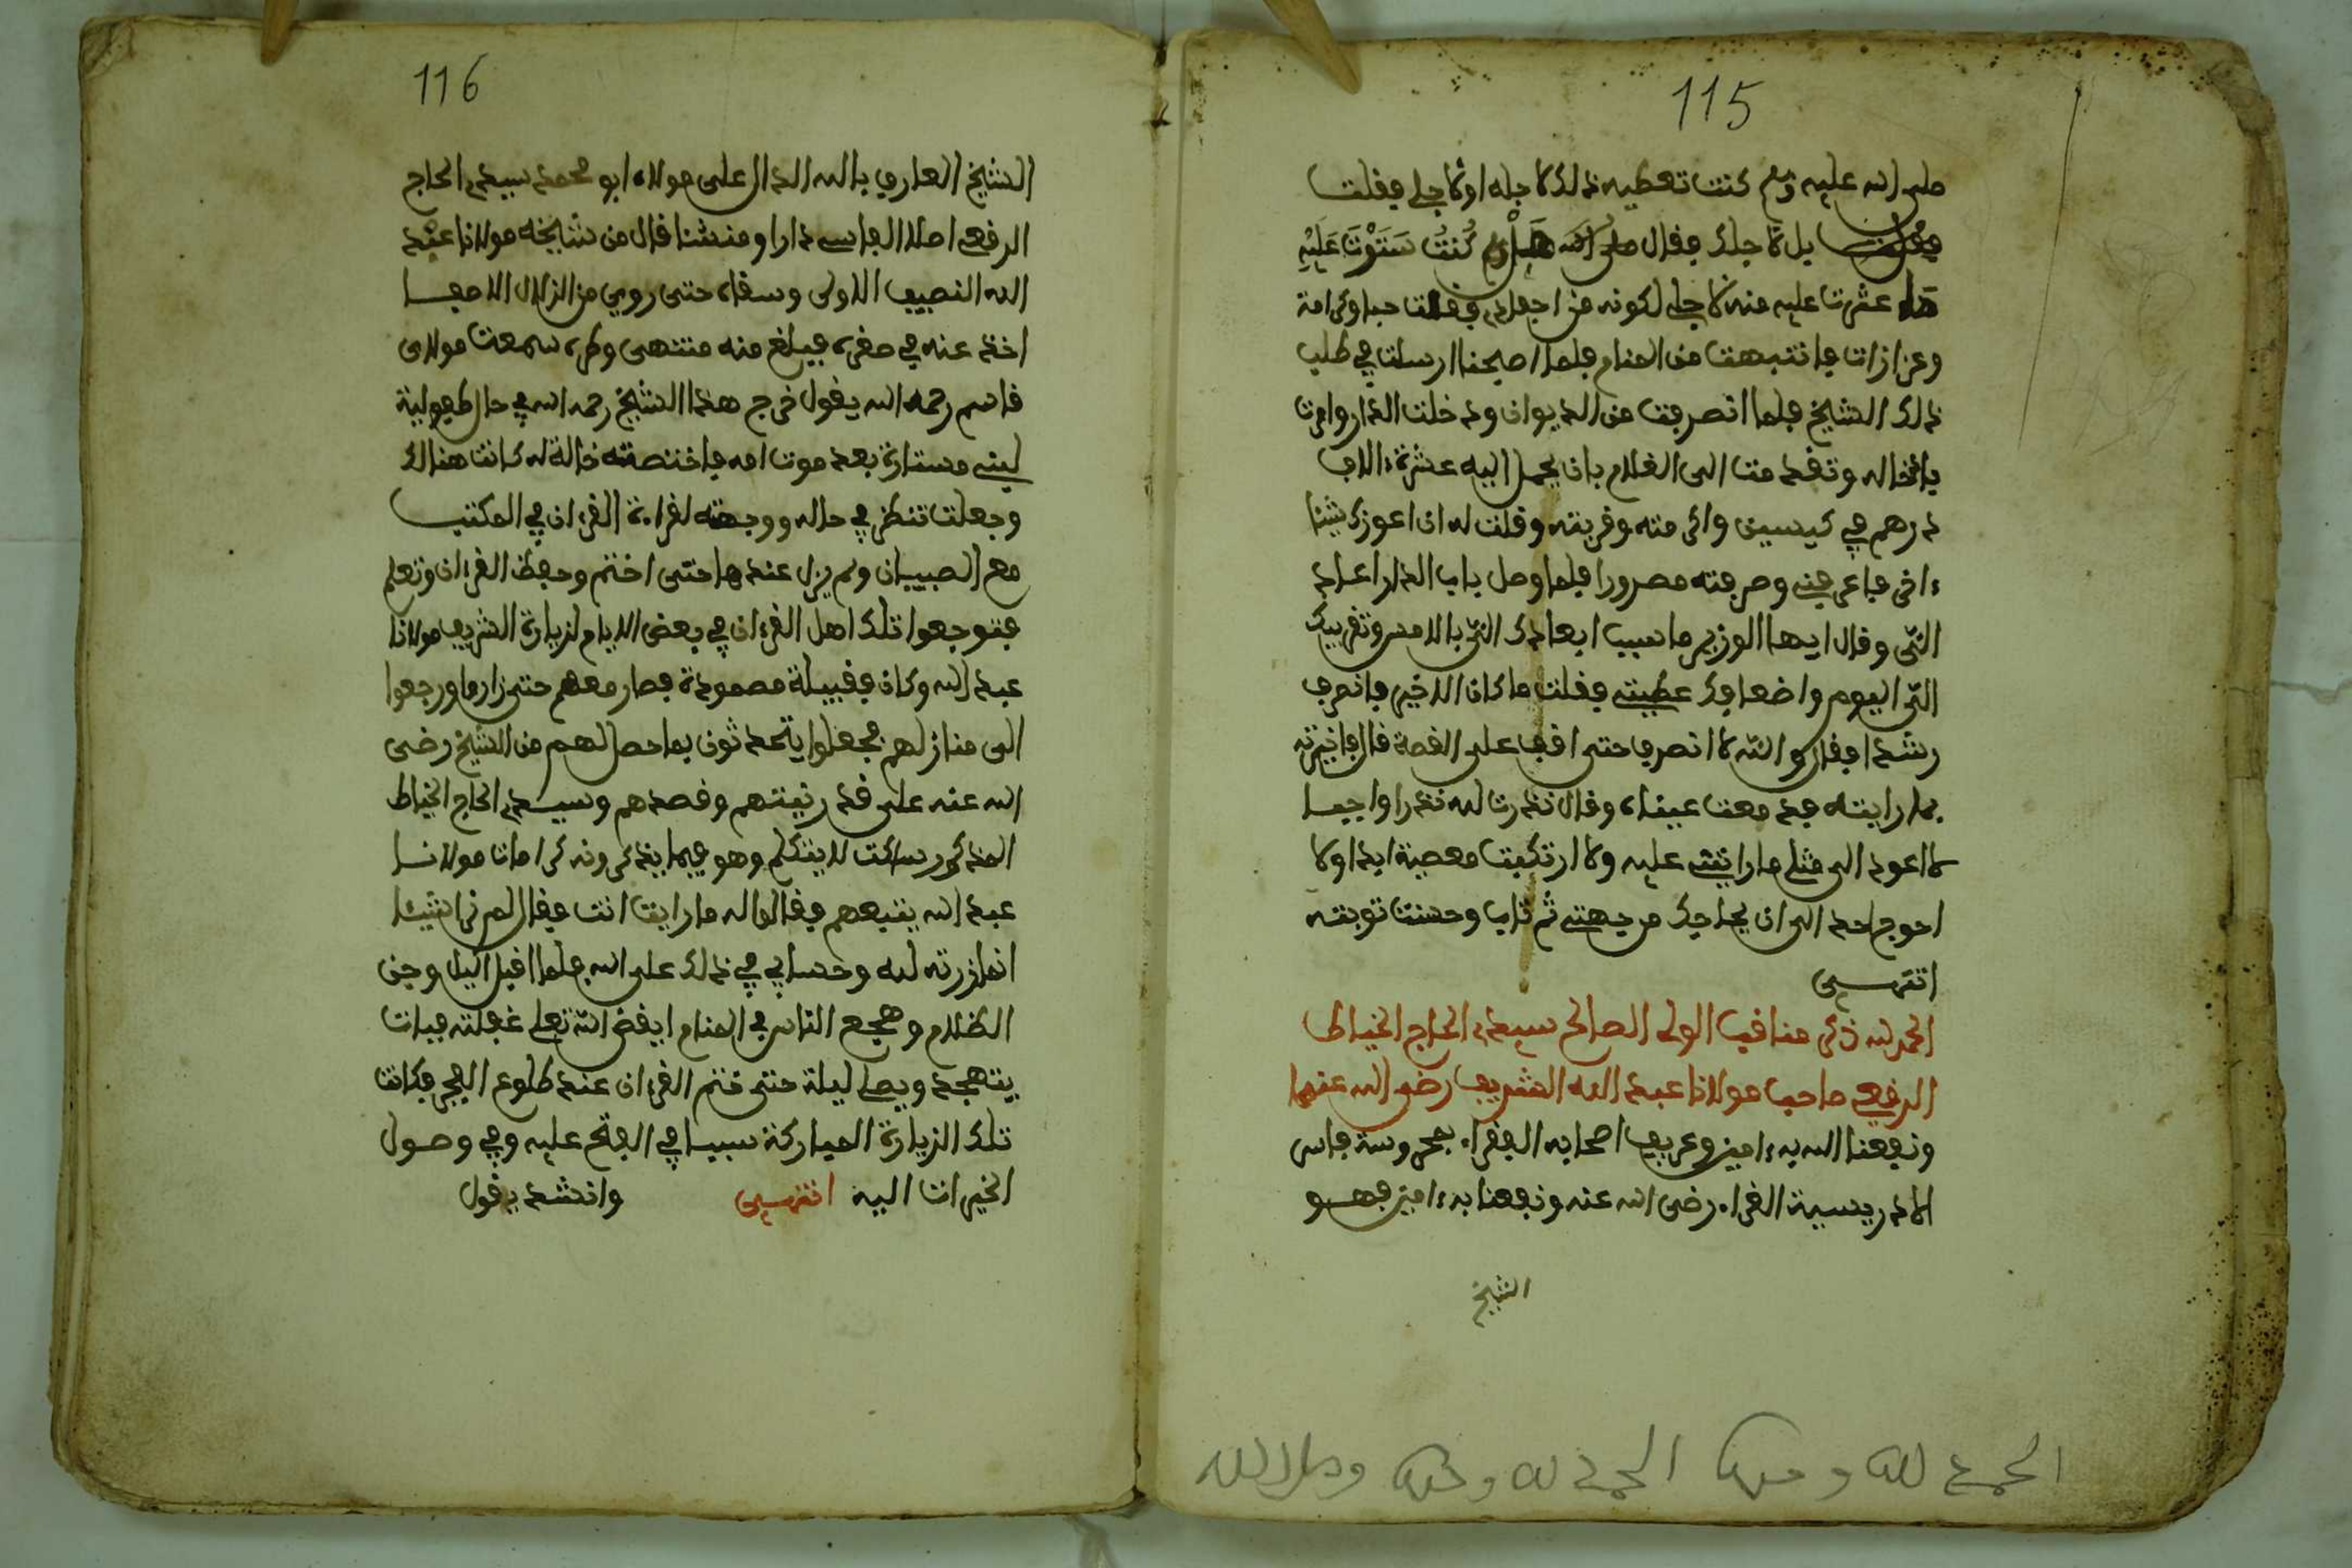 115
صلى الله عليه وسلم كنت تعطيه ذلك لاجله او لاجلي فقلت
بل لاجلك فقال صلى الله عليه وسلم كنت سترت عليه
عثرت عليه منه لاجلي لكونه من احفادي فقلت حبا وكرامة
وعزازات فانتبهت من المنام فلما اصبحنا ارسلت في طلب
ذلك الشيخ فلما انصرفت من الديوان ودخلت الدار وامرت
بادخاله وتقدمت الى الغلام بان يحمل اليه عشرة ءالاف
درهم في كيسين واكرمته وقربته وقلت له ان اعوزك شيئا
ءاخر فاعرفني وصرفته مسرورا فلما وصل باب الدار اعاد
الي وقال ايها الوزير ما سبب ابعادك الي بالامس وتقريبك
الي اليوم واضعافك عطيتي فقلت ما كان الاخير فانصرف
رشدا فقال والله لا انصرف حتى اقف على القصة قال فاخبرته
بما رايته فدمعت عيناه وقال نذرت لله نذرا واجبا
لا اعود الى مثل ما رايتني عليه ولا ارتكبت معصية ابدا ولا
احوج احد الى ان يحاجك من جهتي ثم تاب وحسنت توبته
انتهى
الحمد لله ذكر مناقب الولي الصالح سيدي الحاج الخياط
الرقعي صاحب مولانا عبد الله الشريف رضي الله عنهما
ونفعنا الله به ءامين وعريف اصحابه الفقراء بمحروسة فاس
الادريسية الغراء رضي الله عنه ونفعنا به ءامين فهو
الشيخ
الحمد لله وحده الحمد لله وحده وصلى الله
116
الشيخ العارف بالله الدال على مولاه ابو محمد سيدي الحاج
الرقعي اصلا الفاسي دارا ومنشئا قال من شايخه مولانا عبد
الله النصيب الاوفى وسقاه حتى روي من الزلال الاصفا
اخذ عنه في صغره فبلغ منه منتهى وطره سمعت مولاي
قاسم رحمه الله يقول خرج هذا الشيخ رحمه الله في حال طفولية
لبني مستارة بعد موت امه فاختصته خالة له كانت هنالك
وجعلت تنظر في حاله ووجهته لقراءة القرءان في المكتب
مع الصبيان ولم يزل عندها حتى اختم وحفظ القرءان وتعلم
فتوجهوا تلك اهل القرءان في بعض الايام لزيارة الشريف مولانا
عبد الله وكان فقبيلة مصمودة فصار معهم حتى زاروا ورجعوا
الى منازلهم فجعلوا يتحدثون بما حصل لهم من الشيخ رضي
الله عنه على قدر نيتهم وقصدهم وسيدي الحاج الخياط
المذكور ساكت لا يتكلم وهو فيما يذكرونه كرامات مولانا
عبد الله يتبعهم فقالوا له ما رايت انت فقال لم نرا شيئا
انما زرته لله وحسابي في ذلك على الله فلما اقبل اليل وجن
الظلام وهجع الناس في المنام ايقض الله تعلى غفلته فبات
يتهجد ويصلي ليلة حتى ختم القرءان عند طلوع الفجر فكانت
تلك الزيارة المباركة سببا في الفتح عليه وفي وصول
الخيرات اليه انتهى وانشد يقول